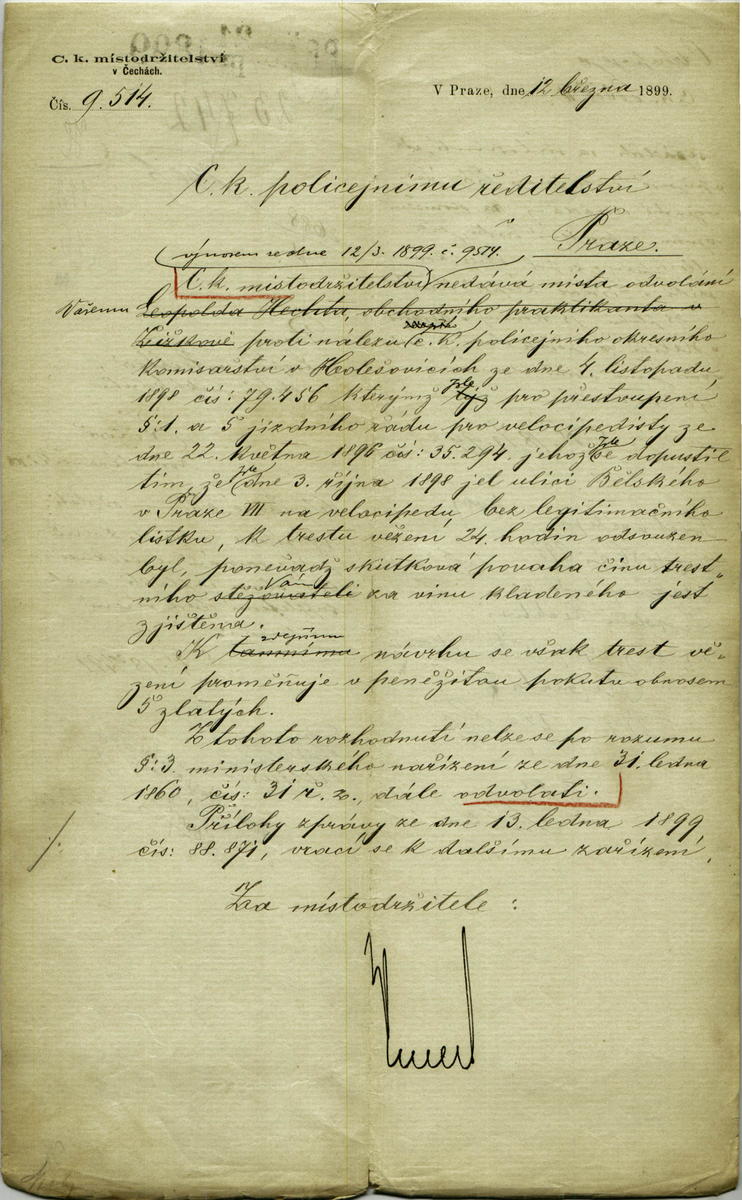 C. k. místodržitelství
v Čechách.
Čís. 9.514.
V Praze, dne 12 března 1899.
C. k. policejnímu ředitelství
v
Praze.
(výnosem ze dne 12/3. 1899. č. 9514.
C. k. místodržitelství) nedává místa odvolání
Vašemu Leopolda Hechta, obchodního praktikanta v
Žižkově proti nálezu c. k. policejního okresního
komisařství v Holešovicích ze dne 4. listopadu
1898 čís: 79.456 kterýmž jste týž pro přestoupení
§: 1. a 5 jízdního řádu pro velocipedisty ze
dne 22. května 1896 čís: 35.294. jehož jste se dopustil
tím, že jste dne 3. října 1898 jel ulicí Bělského
v Praze VII na velocipedu, bez legitimačního
lístku, k trestu vězení 24 hodin odsouzen
byl, poněvadž skutková povaha činu trest-
ního stěžovateli Vám za vinu kladeného jest
zjištěna.
K tamnímu zdejšímu návrhu se však trest vě-
zení proměňuje v peněžitou pokutu obnosem
5 zlatých.
Z tohoto rozhodnutí nelze se po rozumu
§: 3. ministerského nařízení ze dne 31. ledna
1860, čís: 31 ř. z., dále odvolati.
Přílohy zprávy ze dne 13. ledna 1899
čís: 88.871, vrací se k dalšímu zařízení.
Za místodržitele: